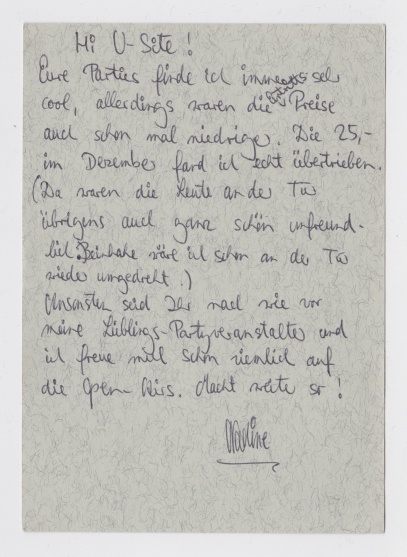 Hi U-Site!
Eure Parties finde ich immer sehr
cool, allerdings waren die Eintritts Preise
auch schon mal niedriger. Die 25,-
im Dezember fand ich echt übertrieben.
(Da waren die Leute an der Tür
übrigens auch ganz schön unfreund-
lich. Beinhahe wäre ich schon an der Tür
wieder umgedreht.)
Ansonsten seid Ihr nach wie vor
meine Lieblings-Partyveranstalter und
ich freue mich schon ziemlich auf
die Open-Airs. Macht weite so!
Nadine